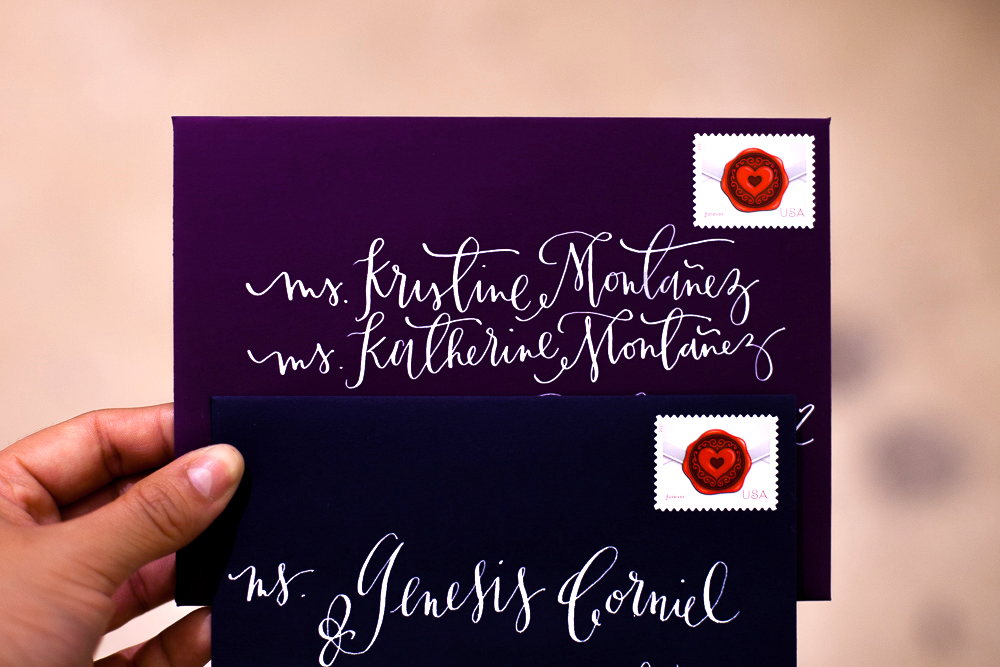 forever USA
ms. Kristine Montañez
ms. Katherine Montañez
forever USA
ms. Genesis Corniel